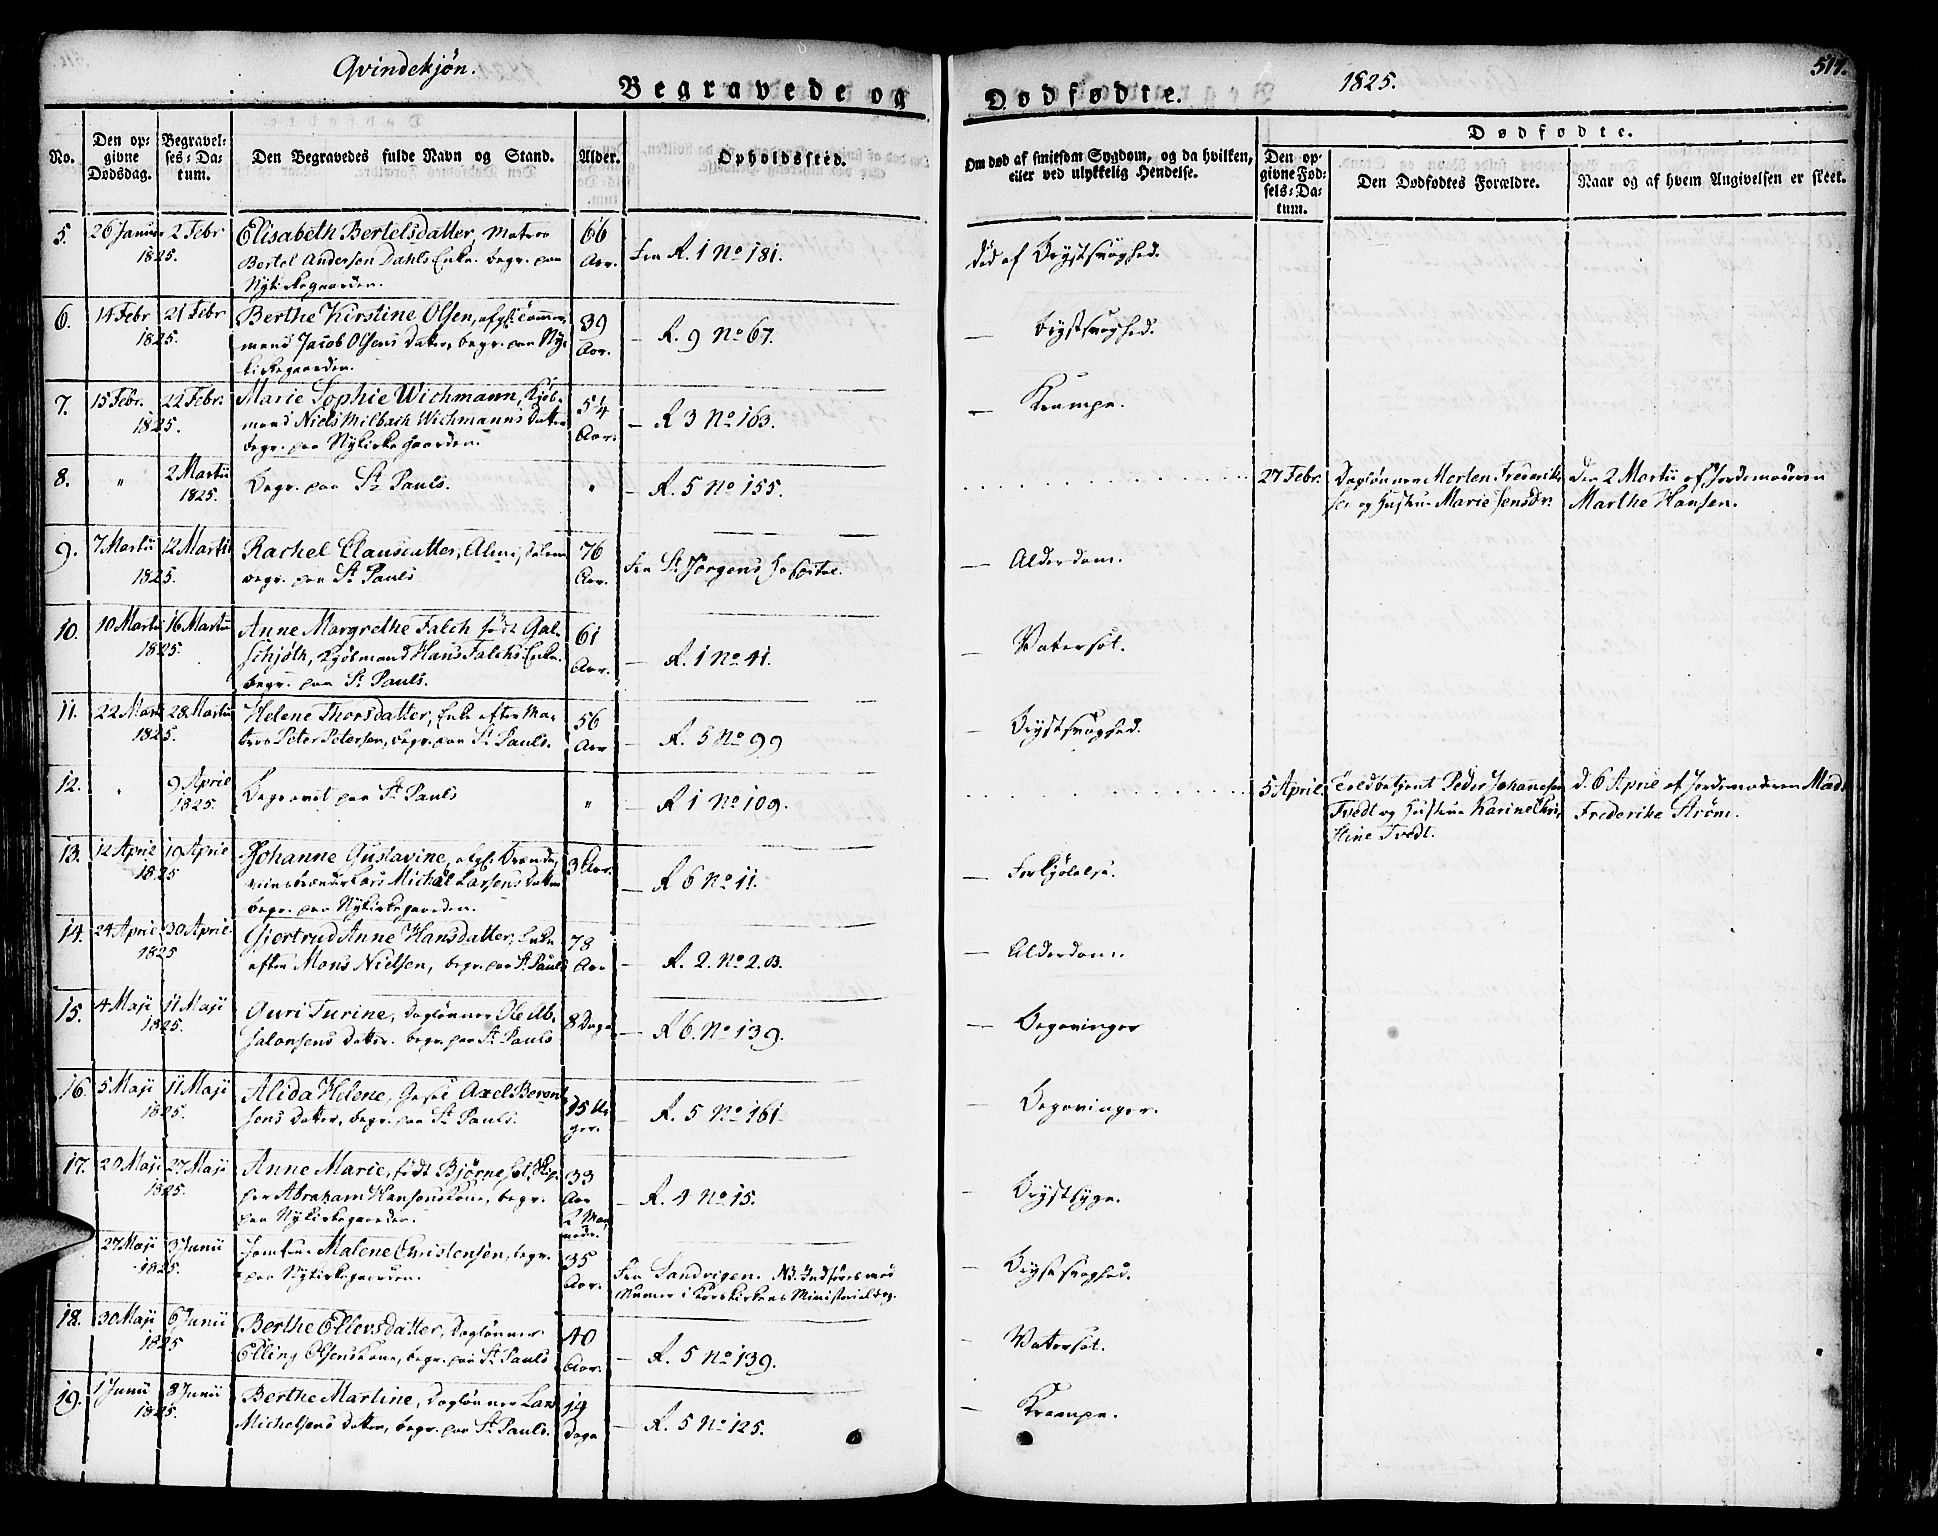 Qvindekjøn.
Begravede og Dødfødte.
1825.
517.
No.
Den opgivne Dødsdag.
Begravelses-Datum.
Den Begravedes fulde Navn og Stand.
Alder.
Opholdssted.
Om død af smitsom Sygdom, og da hvilken, eller ved ulykkelig Hendelse.
Dødfødte.
Den opgivne Fødsels-Datum.
Den Dødfødtes Forældre.
Naar og af hvem Angivelsen er skeet.
5. 26 Januar 2 Febr 1825. Elisabeth Bertelsdatter, Matros
Bertel Andersen Dahls Enke. begr. paa
Nykirkegaarden.
66 Aar. Fra R. 1 No 181. død af Brystsvaghed.
6. 14 Febr 21 Febr 1825. Berthe Kirstine Olsen, afgl: Tømmer
mand Jacob Olsens Datter, begr. paa Ny
kirkegaarden.
39 Aar. — R. 9 No 67. — Brystsvaghed.
7. 15 Febr. 22 Febr. 1825. Marie Sophie Wichmann, Kjøb
mand Niels Milbach Wichmanns Datter
begr. paa Nykirkegaarden.
54 Aar. — R 3 No 163. — Krampe.
8. " 2 Martii 1825. Begr. paa St Pauls. " — R. 5 No 155.
27 Febr. Daglønner Morten Frederik
sen og Hustru Marie Jensdr.
den 2 Martii af Jordemoderen
Marthe Hansen.
9. 7 Martii 12 Martii 1825. Rachel Clausdatter, Almisselem
begr. paa St Pauls
76 Aar. Fra St Jørgens Hospital. — Alderdom.
10. 10 Martii 16 Martii 1825. Anne Margrethe Falch født Gal
schjøth, Kjøbmand Hans Falchs Enke.
begr. paa St Pauls.
61 Aar. — R. 1 No 41. — Vatersot.
11. 22 Marti 28 Martii 1825. Helene Thorsdatter, Enke efter Ma
tros Peter Petersen, begr. paa St Pauls.
56 Aar — R. 5 No 99 — Brystsvaghed.
12. " 9 April 1825. Begravet paa St Pauls " — R 1 No 109.
5 April Toldbetjent Peder Johannesen
Tvedt og Hustru Karine Chri
stine Tvedt.
d. 6 April af Jordemoderen Mad
Frederike Strøm.
13. 12 April 19 April 1825 Johanne Gustavine, afgl: Brænde
viinsbrænder Lars Michael Larsens Datter
begr. paa Nykirkegaarden.
3 Aar. — R 6 No 11. — Forkjølelse.
14. 24 April 30 April 1825 Giertrud Anne Hansdatter, Enke
efter Mons Nielsen, begr. paa St Pauls
78 Aar — R. 2. No 203. — Alderdom.
15. 4 Maji 11 Maji 1825. Guri Turine, Daglønner Ole Ab
salonsens Datter. begr. paa St Pauls
8 Dage — R 6. No 139. — Begavinger
16. 5 Maji 11 Maji 1825. Alida Helene, Axel Berent
sens Datter, begr. paa St Pauls.
15 Uger. — R. 5 No 161 — Begavinger.
17. 20 Maji 27 Maji 1825. Anne Marie, født Bjørnsel, Skip
per Abraham Hansens Kone, begr.
paa Nykirkegaarden.
33 Aar 2 Maaneder. — R. 4 No 15. — Brystsyge.
27 Maji 3 Junii 1825. Jomfrue Malene Christensen, begr.
paa Nykirkegaarden.
35 Aar. Fra Sandvigen. NB. Indføres med
Numer i Korskirkens Ministerialbog.
— Brystsvaghed.
18. 30 Maji 6 Junii 1825 Berthe Ellevsdatter, Daglønner
Elling Olsens Kone, begr. paa St Pauls
40 Aar. — R. 5 No 139. — Vatersot.
19. 1 Junii 8 Junii 1825. Berthe Martine, Daglønner Lars
Michelsens Datter, begr. paa St Pauls.
14 Dage — R. 5 No 125. — Krampe.